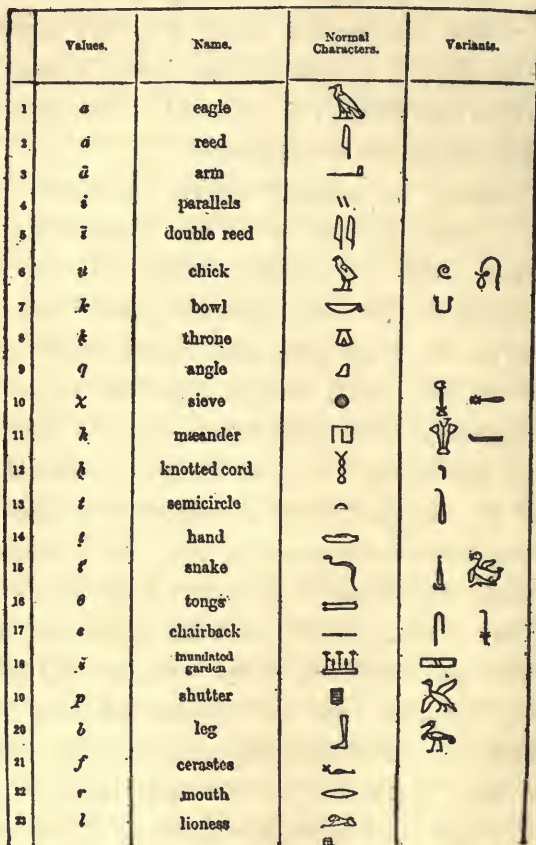 Values. Name. Normal Characters. Variants.
1 a eagle
2 ȧ reed
3 ā arm
4 i parallels
5 ī double reed
6 u chick
7 k bowl
8 ḳ throne
9 q angle
10 χ sieve
11 h mæander
12 ḥ knotted cord
13 t semicircle
14 ṭ hand
15 t' snake
16 θ tongs
17 s chairback
18 š inundated garden
19 p shutter
20 b leg
21 f cerastes
22 r mouth
23 l lioness